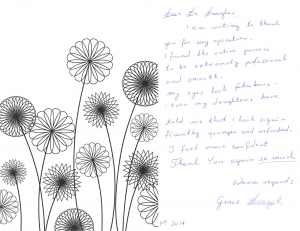 Dear Dr.
I am writing to thank
you for my operation.
I found the entire process
to be extremely professional
and smooth.
My eyes look fabulous.
Even my daughters have
told me that I look signi-
ficantly younger and refreshed.
I feel more confident
Thank You again so much
Warm regards,
Grace
2014